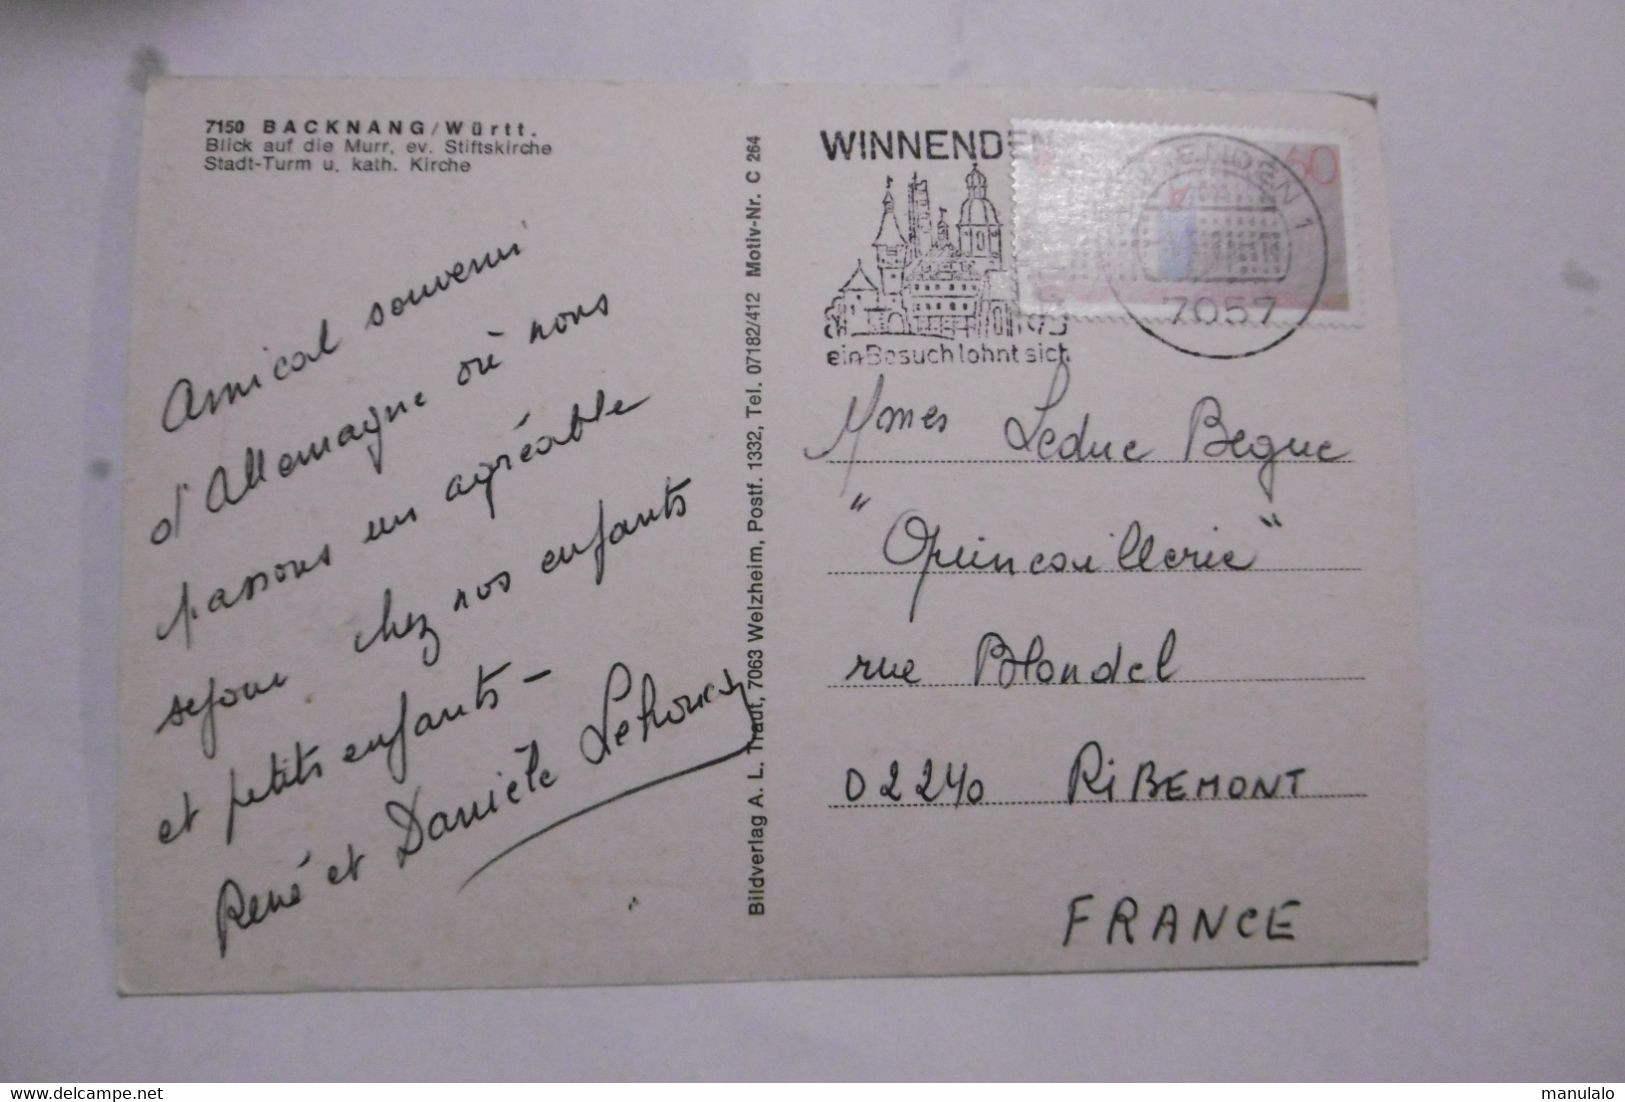 7150 BACKNANG/Württ.
Blick auf die Murr, ev. Stiftskirche
Stadt-Turm u. kath. Kirche
Amical souvenir
d'Allemagne où nous
passons un agréable
sejour chez nos enfants
et petits enfants -
René et Danièle
Bildverlag A. L. Traut, 7063 Welzheim, Postf. 1332, Tel. 07182/412 Motiv-Nr. C 264
WINNENDEN
ein Besuch lohnt sich
WINNENDEN 1
7057
60
Mmes Leduc Begue
"Quincaillerie"
rue Blondel
02240 RiBEMONT
FRANCE
delcampe.net
manulalo